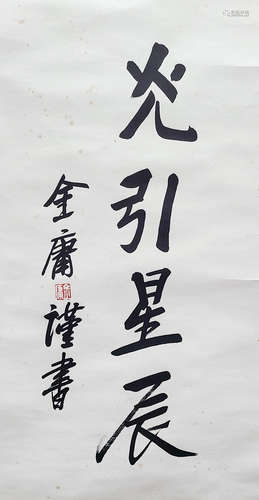 光引星辰
金庸
謹書